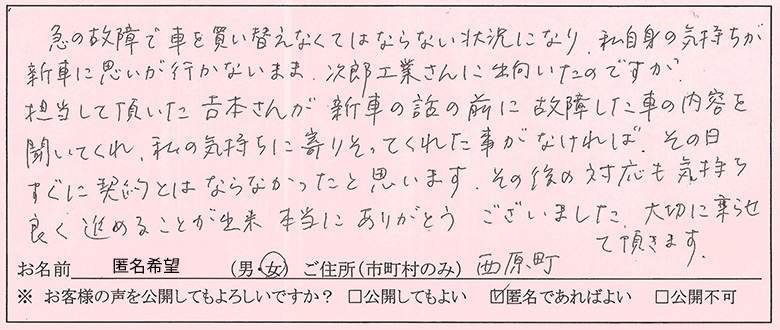 急の故障で車を買い替えなくてはならない状況になり、私自身の気持ちが
新車に思いが行かないまま、次郎工業さんに出向いたのですが、
担当して頂いた吉本さんが新車の話の前に故障した車の内容を
聞いてくれ、私の気持ちに寄りそってくれた事がなければ、その日
すぐに契約とはならなかったと思います。その後の対応も気持ち
良く進めることが出来本当にありがとうございました。大切に乗らせ
て頂きます。
お名前 匿名希望 (男・女) ご住所(市町村のみ) 西原町
※ お客様の声を公開してもよろしいですか? □公開してもよい ☑匿名であればよい □公開不可